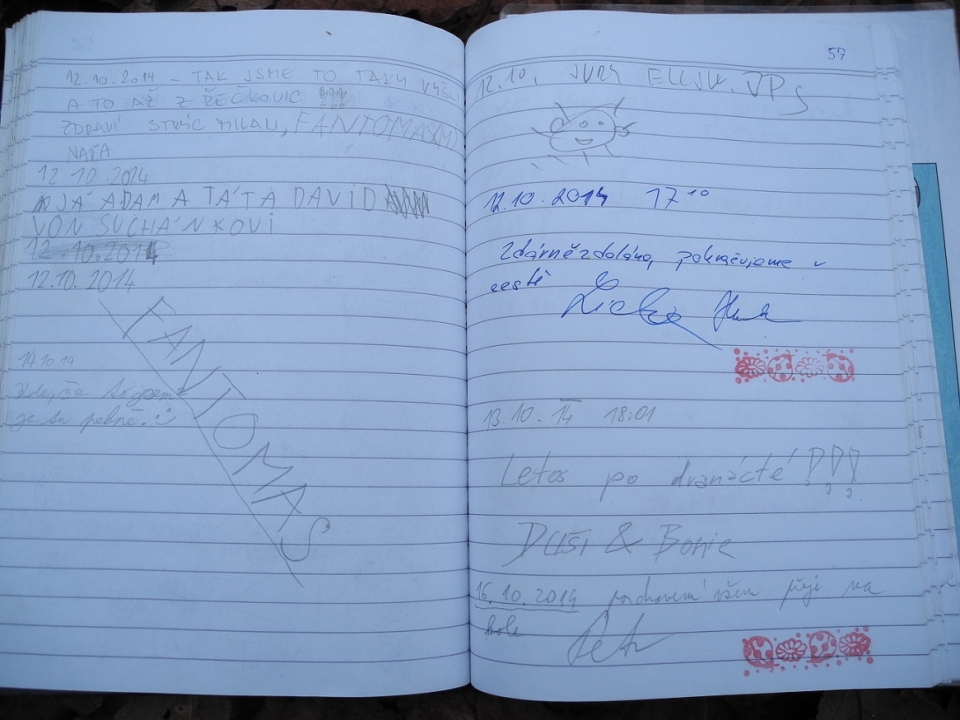 12.10.2014 – TAK JSME TO TAKY VYŠLI
A TO AŽ Z ŘEČKOVIC !!!
ZDRAVÍ STRÝC MILAN, FANTOMAS(M)
NAĎA
12 10.2014
JÁ ADAM A TÁTA DAVID
VON SUCHÁNKOVI
12.10.2014
12.10.2014
FANTOMAS
14.10.14
je tu pekně.
57
12.10.
12.10.2014 17¹⁰
Zdárně zdolána, pokračujeme v
cestě
13.10.14 18:01
Letos po dvanácté!!!
Duši & Bonie
16.10.2014 všem přeji na
kole
Petr